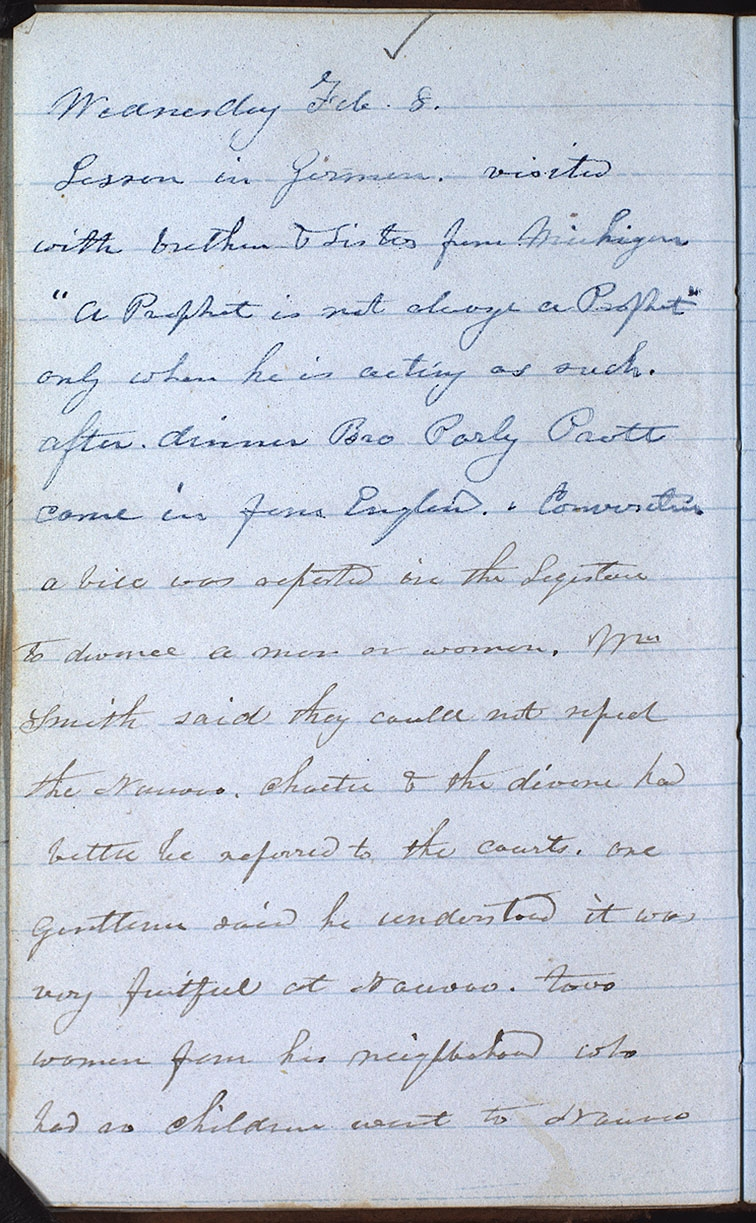 Wednesday Feb. 8.
Lesson in German. visited
with brethren & Sisters from Michigan
"a Prophet is not always a Prophet"
only when he is acting as such.
after dinner Bro Parly Pratt
came in from England. & Conversation
a bill was reported in the Legislature
to divorce a man or woman. Wm
Smith said they could not repeal
the Nauvoo. Charter & the divorce had
better be referred to the courts. one
gentleman said he understood it was
very fruitful at Nauvoo. two
women from his neighborhood who
had no children went to Nauvoo